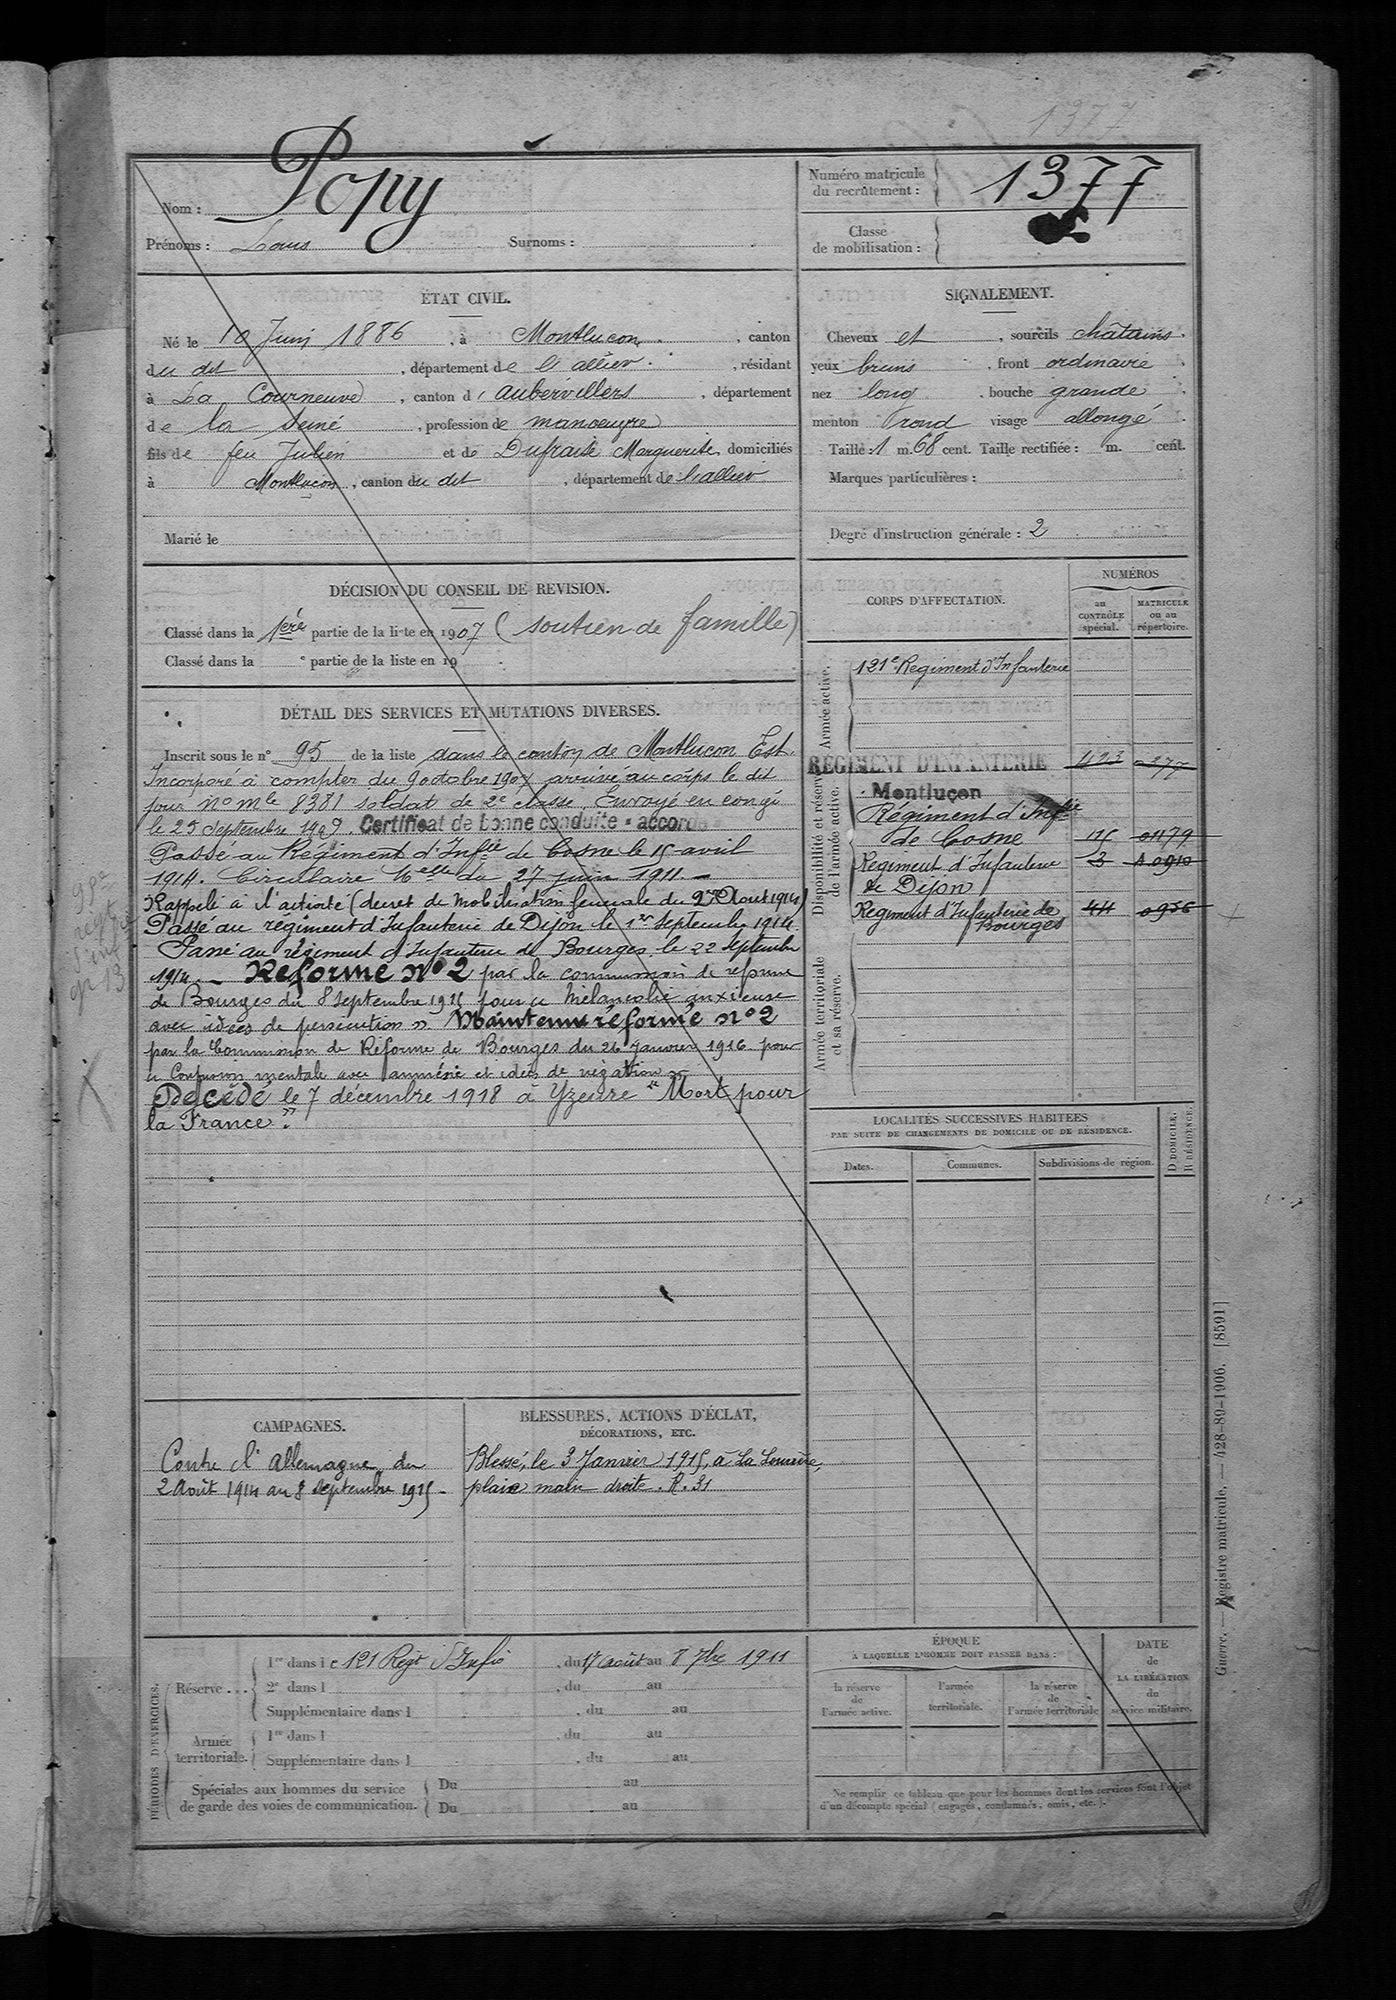 1377
Nom : Popy
Prénoms : Louis Surnoms :
Numéro matricule du recrutement : 1377
Classe de mobilisation :
ÉTAT CIVIL.
Né le 10 Juin 1886, à Montluçon, canton
du dit, département de l'allier, résidant
à La Courneuve, canton d'Aubervillers, département
de la Seine, profession de manoeuvre
fils de feu Julien et de Dufraise Marguerite, domiciliés
à Montluçon, canton du dit, département de l'allier
Marié le
SIGNALEMENT.
Cheveux et, sourcils châtains
yeux bruns, front ordinaire
nez long, bouche grande
menton rond visage allongé
Taille : 1 m. 68 cent. Taille rectifiée : m. cent.
Marques particulières :
Degré d'instruction générale : 2
DÉCISION DU CONSEIL DE REVISION.
Classé dans la 1ère partie de la liste en 1907 (soutien de famille)
Classé dans la e partie de la liste en 19
DÉTAIL DES SERVICES ET MUTATIONS DIVERSES.
Inscrit sous le n° 95 de la liste dans le canton de Montluçon Est.
Incorporé à compter du 9 octobre 1907 arrivé au corps le dit
jour No Mle 8381 soldat de 2e classe. Envoyé en congé
le 25 Septembre 1909. Certificat de bonne conduite "accordé"
Passé au Régiment d'Infie de Cosne le 15 avril
1914. Circulaire Melle du 27 juin 1911. —
Rappelé à l'activité (décret de Mobilisation générale du 2 Août 1914)
Passé au régiment d'Infanterie de Dijon le 1er Septembre 1914.
Passé au régiment d'Infanterie de Bourges le 22 Septembre
1914. — Réformé No 2 par la commission de réforme
de Bourges du 8 Septembre 1915 pour « Mélancolie anxieuse
avec idées de persécution » Maintenu réformé no 2
par la Commission de Réforme de Bourges du 26 Janvier 1916 pour
« Confusion mentale avec amnésie et idées de négation »
Décédé le 7 décembre 1918 à Yzeure "Mort pour
la France".
99e
regt
d'inf
gr 13
CORPS D'AFFECTATION.
NUMÉROS
au CONTRÔLE spécial.
MATRICULE ou au répertoire.
Armée active.
121e Régiment d'Infanterie
Disponibilité et réserve de l'armée active.
RÉGIMENT D'INFANTERIE 423 0277
Montluçon
Régiment d'Infie
de Cosne 15 01179
Régiment d'Infanterie 3 10910
de Dijon
Régiment d'Infanterie de 44 0956
Bourges
Armée territoriale et sa réserve.
LOCALITÉS SUCCESSIVES HABITÉES
PAR SUITE DE CHANGEMENTS DE DOMICILE OU DE RÉSIDENCE.
Dates. Communes. Subdivisions de région. D DOMICILE. R RÉSIDENCE.
CAMPAGNES.
Contre l'Allemagne du
2 Août 1914 au 8 septembre 1915 -
BLESSURES, ACTIONS D'ÉCLAT,
DÉCORATIONS, ETC.
Blessé, le 3 Janvier 1915, à La
plaie main droite. R. 31
PÉRIODES D'EXERCICES.
Réserve ... 1re dans le 121 Regt d'Infie, du 17 août au 8 7bre 1911
2e dans l , du au
Supplémentaire dans l , du au
Armée territoriale. 1re dans l , du au
Supplémentaire dans l , du au
Spéciales aux hommes du service Du au
de garde des voies de communication. Du au
ÉPOQUE
À LAQUELLE L'HOMME DOIT PASSER DANS :
la réserve de l'armée active. l'armée territoriale. la réserve de l'armée territoriale
DATE de LA LIBÉRATION du service militaire.
Ne remplir ce tableau que pour les hommes dont les services font l'objet
d'un décompte spécial (engagés, condamnés, omis, etc.).
Guerre. — Registre matricule. — 428-89-1906. [8591]